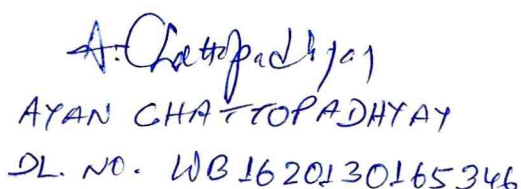 A. Chattopadhyay
AYAN CHATTOPADHYAY
DL. NO. WB1620130165346